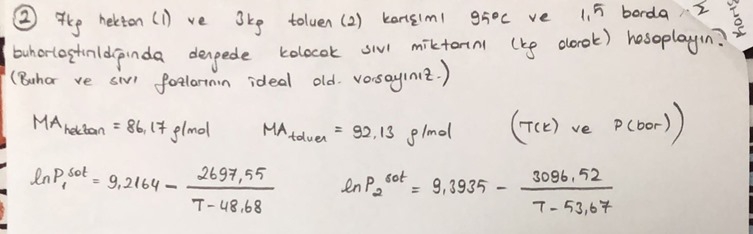 ② 7kg hekzan (1) ve 3kg toluen (2) karışımı 95°C ve 1,5 barda
buharlaştırıldığında dengede kalacak sıvı miktarını (kg olarak) hesaplayın?
(Buhar ve sıvı fazlarının ideal old. varsayınız.)
MA hekzan = 86,17 g/mol MA toluen = 92,13 g/mol (T(K) ve P(bar))
ln P₁ˢᵃᵗ = 9,2164 - 2697,55 / T - 48,68 ln P₂ˢᵃᵗ = 9,3935 - 3096,52 / T - 53,67